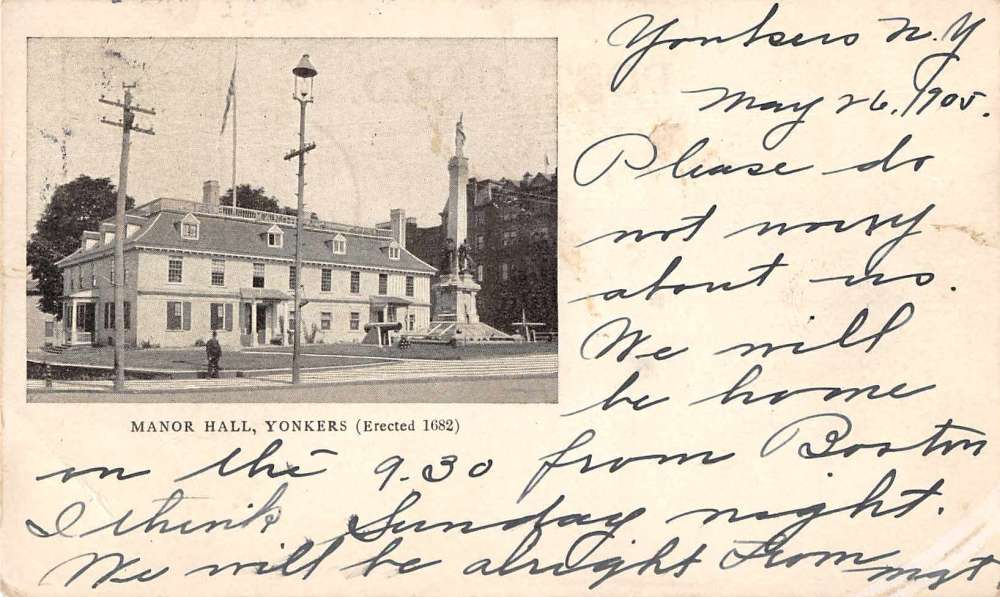 Yonkers N.Y
May 26, 1905.
Please do
not worry
about us.
We will
be home
MANOR HALL, YONKERS (Erected 1682)
on the 9.30 from Boston
I think Sunday night.
We will be alright From